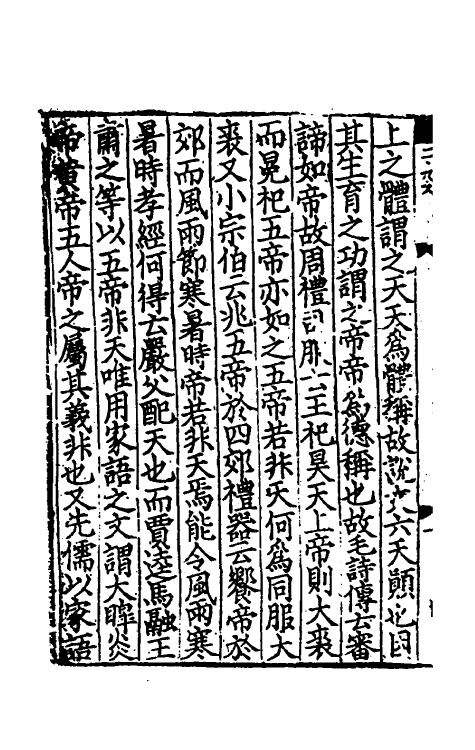 上之體謂之天天爲體稱故說文云天顚也因
其生育之功謂之帝帝爲德稱也故毛詩傳云審
諦如帝故周禮司服云王祀昊天上帝則大裘
而冕祀五帝亦如之五帝若非天何爲同服大
裘又小宗伯云兆五帝於四郊禮器云饗帝於
郊而風雨節寒暑時帝若非天焉能令風雨寒
暑時孝經何得云嚴父配天也而賈逵馬融王
肅之等以五帝非天唯用家語之文謂大皥炎
帝黃帝五人帝之屬其義非也又先儒以家語